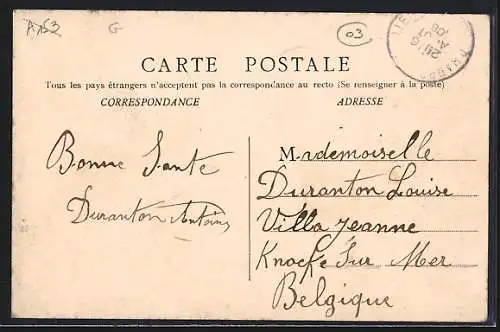 A153 G 03
CARTE POSTALE
Tous les pays étrangers n'acceptent pas la correspondance au recto (Se renseigner à la poste)
CORRESPONDANCE
ADRESSE
Bonne Sante
Duranton Antoine
Mademoiselle
Duranton Louise
Villa Jeanne
Knocke Sur Mer
Belgique